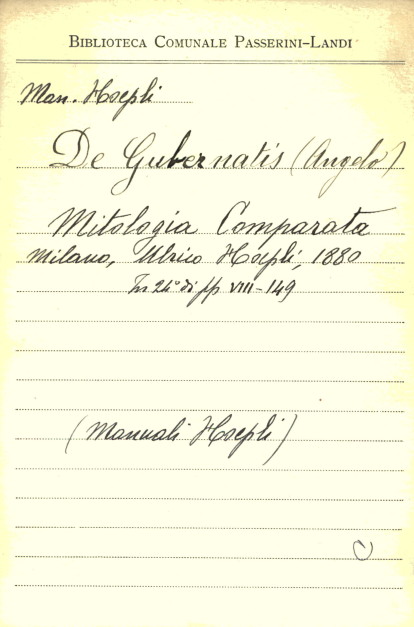 BIBLIOTECA COMUNALE PASSERINI-LANDI
Man. Hoepli
De Gubernatis (Angelo)
Mitologia Comparata
Milano, Ulrico Hoepli, 1880
In 24° di pp VIII-149
(Manuali Hoepli)